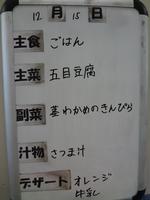 12月15日
主食 ごはん
主菜 五目豆腐
副菜 茎わかめのきんぴら
汁物 さつま汁
デザート オレンジ
牛乳